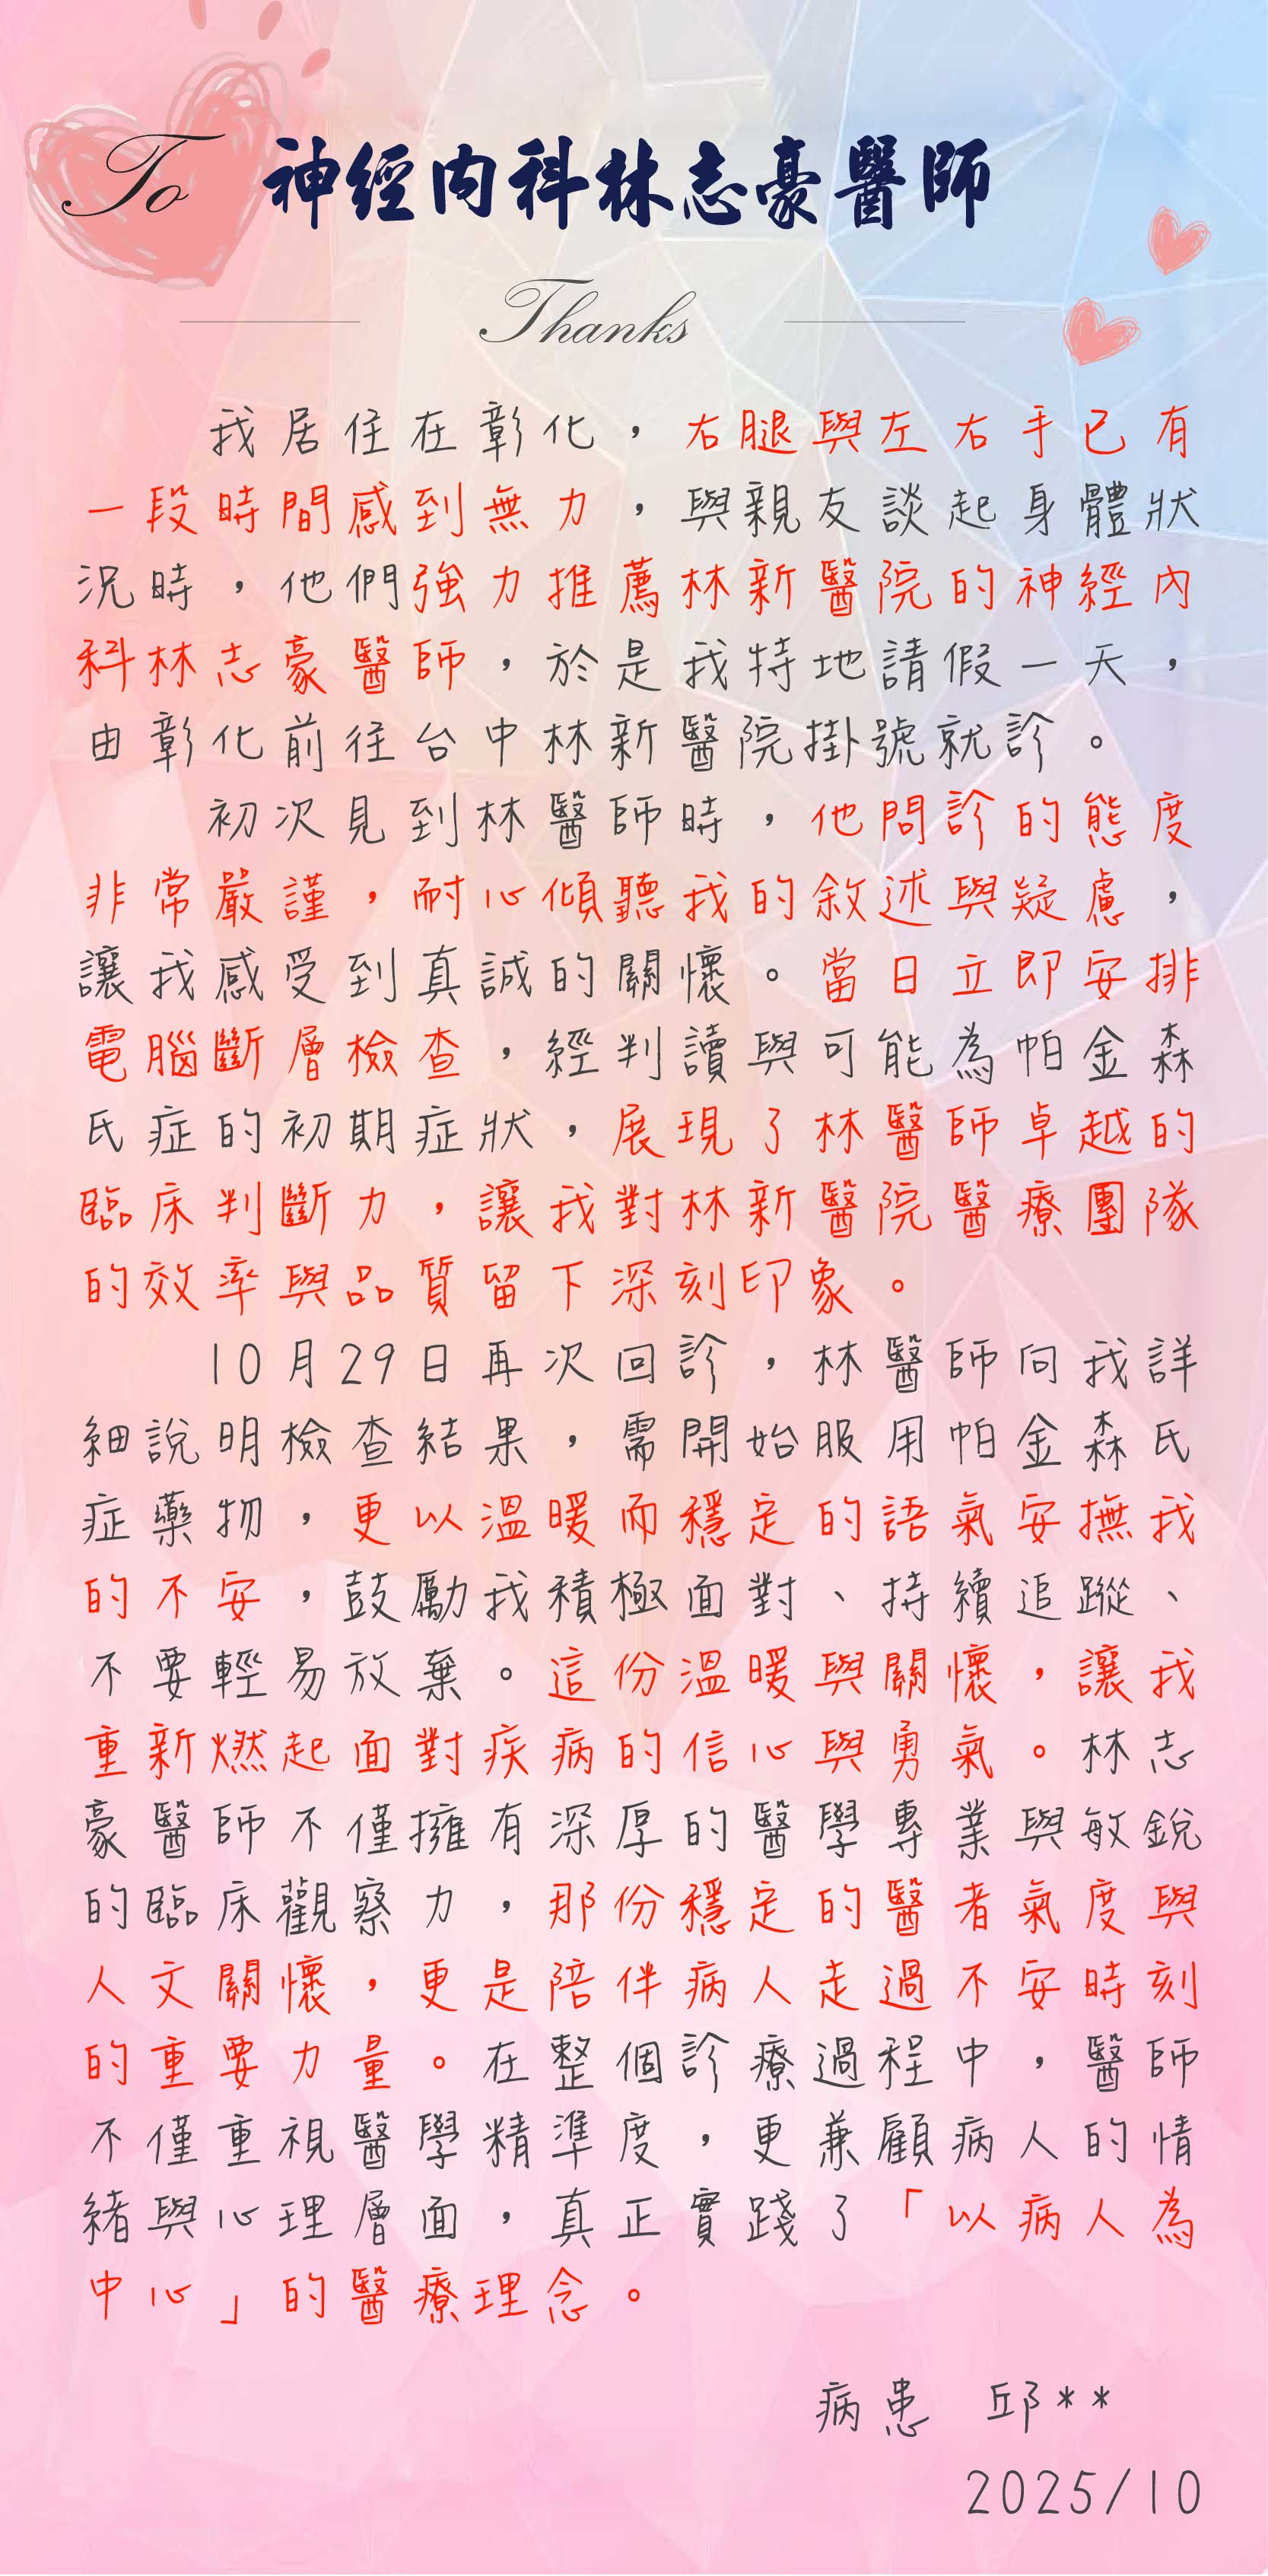 To 神經內科林志豪醫師
Thanks
我居住在彰化，右腿與左右手已有
一段時間感到無力，與親友談起身體狀
況時，他們強力推薦林新醫院的神經內
科林志豪醫師，於是我特地請假一天，
由彰化前往台中林新醫院掛號就診。
初次見到林醫師時，他問診的態度
非常嚴謹，耐心傾聽我的敘述與疑慮，
讓我感受到真誠的關懷。當日立即安排
電腦斷層檢查，經判讀與可能為帕金森
氏症的初期症狀，展現了林醫師卓越的
臨床判斷力，讓我對林新醫院醫療團隊
的效率與品質留下深刻印象。
10月29日再次回診，林醫師向我詳
細說明檢查結果，需開始服用帕金森氏
症藥物，更以溫暖而穩定的語氣安撫我
的不安，鼓勵我積極面對、持續追蹤、
不要輕易放棄。這份溫暖與關懷，讓我
重新燃起面對疾病的信心與勇氣。林志
豪醫師不僅擁有深厚的醫學專業與敏銳
的臨床觀察力，那份穩定的醫者氣度與
人文關懷，更是陪伴病人走過不安時刻
的重要力量。在整個診療過程中，醫師
不僅重視醫學精準度，更兼顧病人的情
緒與心理層面，真正實踐了「以病人為
中心」的醫療理念。
病患 邱**
2025/10